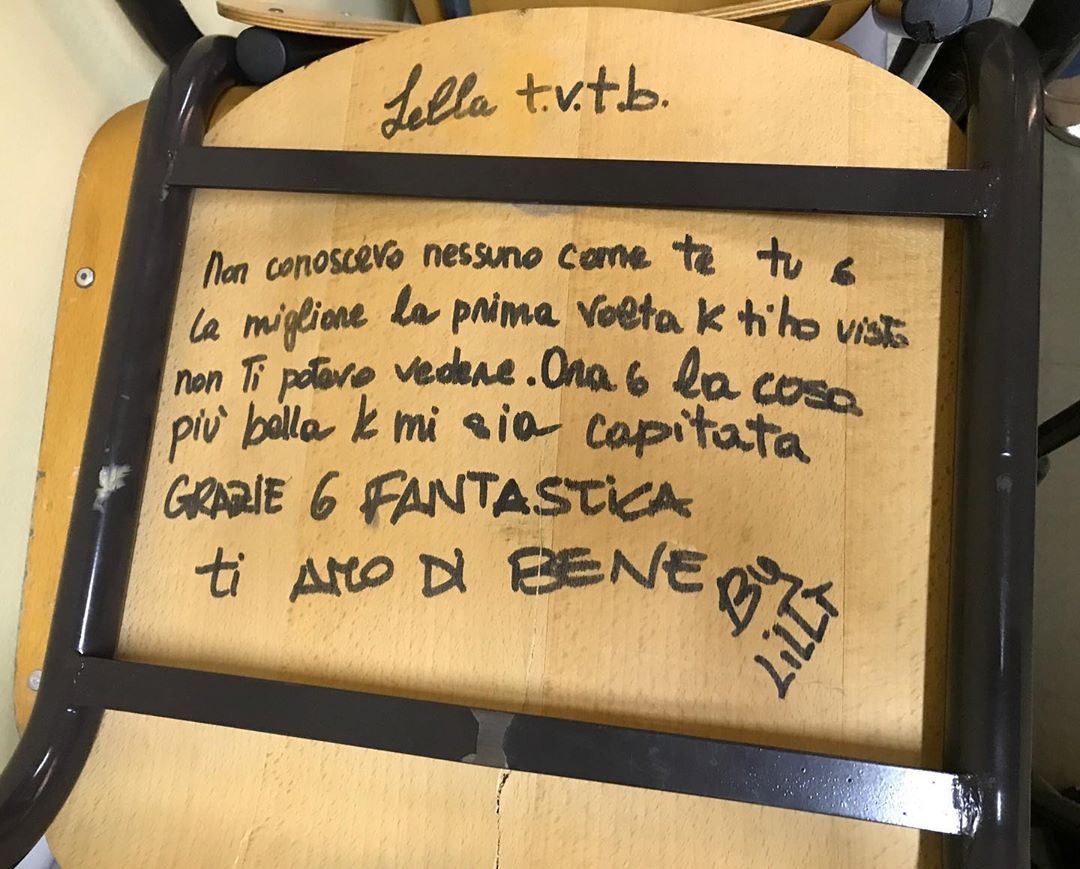 Lella t.v.t.b.
Non conoscevo nessuno come te tu 6
la migliore la prima volta k ti ho vista
non Ti potevo vedere. Ora 6 la cosa
più bella k mi sia capitata
GRAZIE 6 FANTASTiCA
ti AMO Di BENE
BY
LiLLY